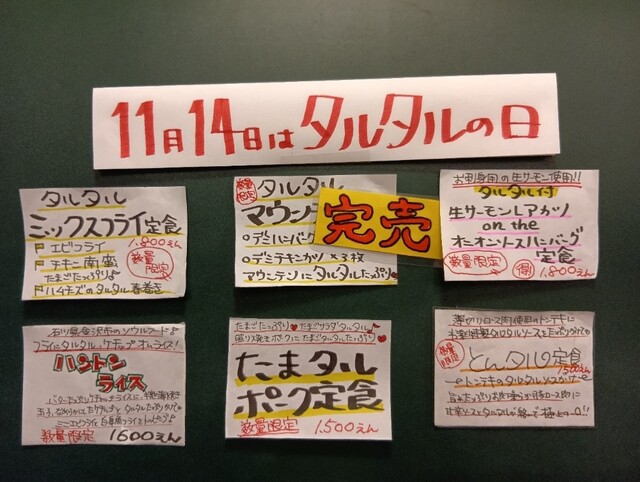 11月14日はタルタルの日
タルタル
ミックスフライ定食
エビフライ
1,800えん
チキン南蛮
たまごたっぷり♪
数量限定
ハムチーズのタルタル春巻き
数量限定
タルタル
マウン
完売
○デミハンバーグ
○デミチキンカツ×3枚
マウンテンにタルタルたっぷり♥
お刺身用の生サーモン使用!!
タルタル付
生サーモンレアカツ
on the
オニオンソースハンバーグ
定食
数量限定
得
1,800えん
石川県金沢市のソウルフード♪
フライにタルタル、ケチャップ、オムライス!
ハントン
ライス
数量限定
1600えん
たまごたっぷり♥たまごサラダタルタル♪
たまタル
ポーク定食
数量限定
1,500えん
厚切りロース肉使用のトンテキに
数量限定
とんタル定食
1500えん
トンテキのタルタルソースがけ